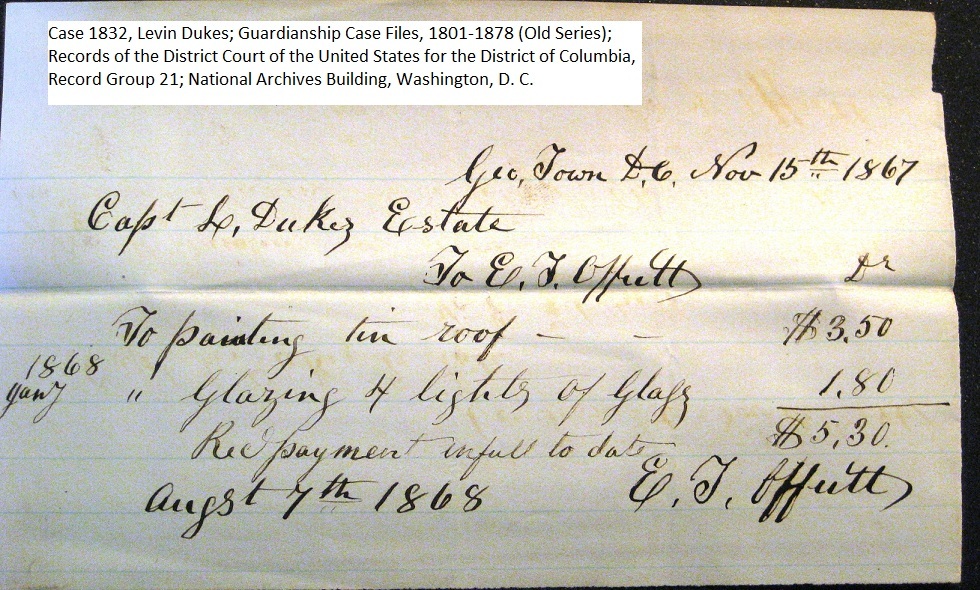 Case 1832, Levin Dukes; Guardianship Case Files, 1801-1878 (Old Series);
Records of the District Court of the United States for the District of Columbia,
Record Group 21; National Archives Building, Washington, D. C.
Geo, Town D.C. Nov 15th 1867
Capt L, Dukes Estate
To E. T. Offutt Dr
To painting tin roof - - $3.50
1868
Jany " Glazing 4 lights of Glass 1.80
$5,30.
Recd payment in full to date
Augst 7th 1868 E. T. Offutt